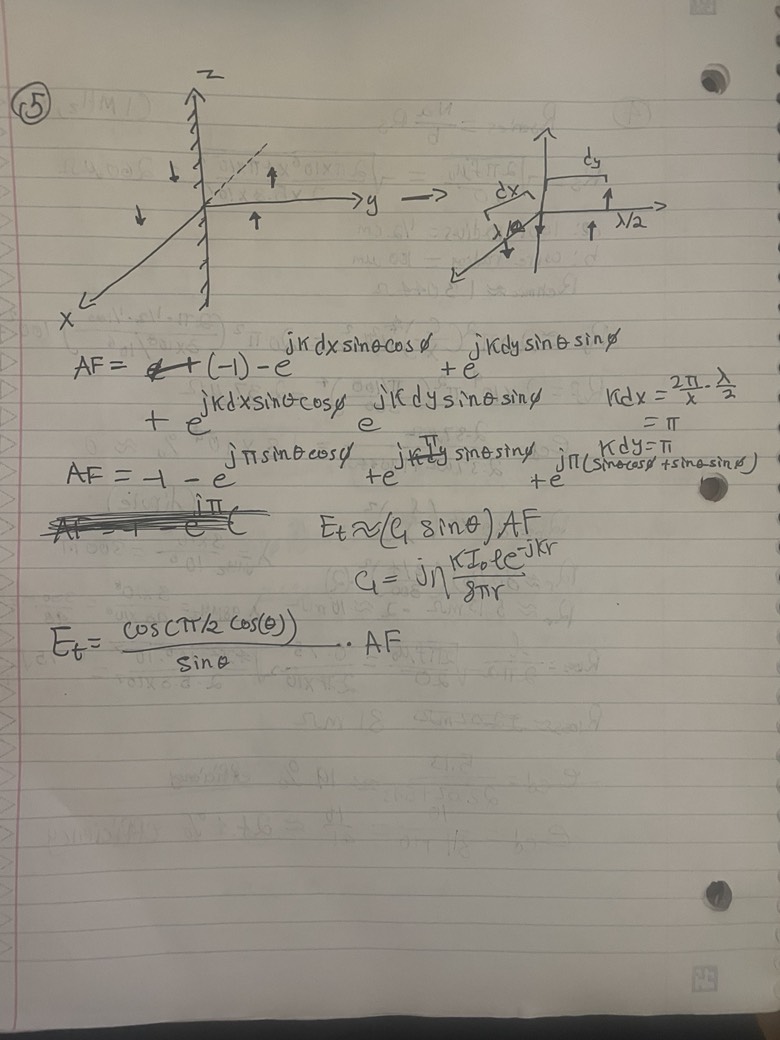 5
z
y
x
dy
dx
λ/2
λ/2
AF = (-1) - e^{jKdxsinθcosϕ} + e^{jKdysinθsinϕ}
+ e^{jKdxsinθcosϕ} e^{jKdysinθsinϕ}
Kdx = 2π/x · λ/2
= π
Kdy = π
AF = -1 - e^{jπsinθcosϕ} + e^{jπsinθsinϕ} + e^{jπ(sinθcosϕ + sinθsinϕ)}
E_t ≈ (C_1 sinθ) AF
C_1 = jη KI_0 le^{-jKr} / 8πr
E_t = cos(π/2 cos(θ)) / sinθ ·· AF